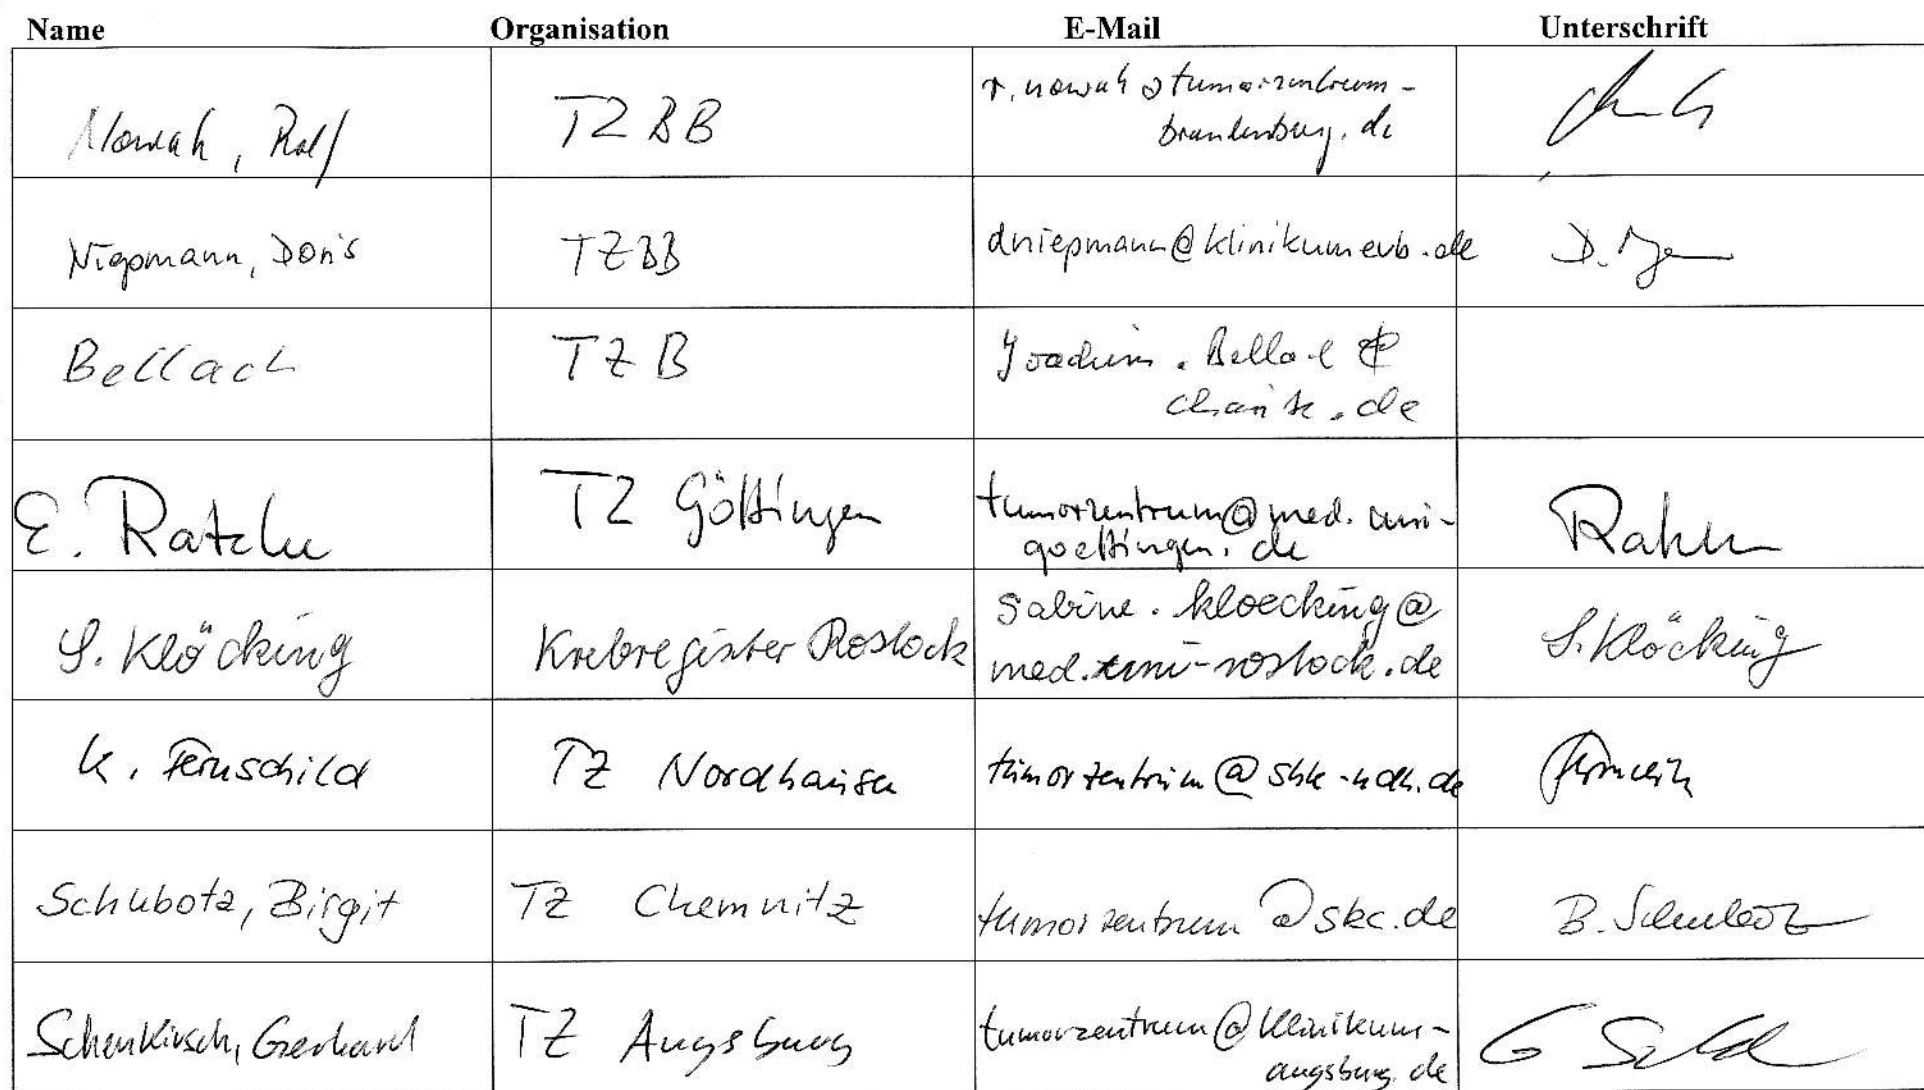 Name Organisation E-Mail Unterschrift
Nowak, Ralf TZBB r.nowak@tumorzentrum-
brandenburg.de
Niepmann, Doris TZBB dniepmann@klinikumevb.de D.
Bellach TZB Joachim.
charite.de
E. TZ Göttingen tumorzentrum@med.uni-
goettingen.de
S. Klöcking Krebsregister Rostock sabine.kloecking@
med.uni-rostock.de S. Klöcking
K. Fernschild TZ Nordhausen tumorzentrum@shk-ndh.de
Schubotz, Birgit TZ Chemnitz tumorzentrum@skc.de B. Schubotz
Schenkirsch, Gerhard TZ Augsburg tumorzentrum@klinikum-
augsburg.de G